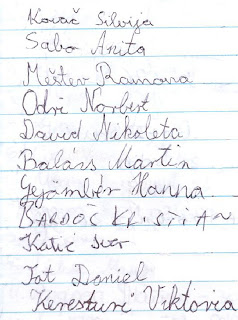 Kovač Silvija
Sabo Anita
Mešter Ramona
Odri Norbert
David Nikoleta
Balázs Martin
Gejämbér Hanna
BARDOČ KRISTIAN
Katić
Tot Daniel
Keresturi Viktoria